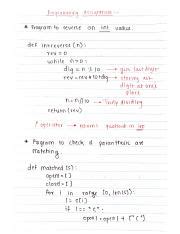 Programming Assignment :-
Program to reverse an int value.
def intreverse (n):
rev = 0
while n > 0:
dig = n % 10 → give last digit
rev = rev*10+dig → storing
digit at one's
place
n = n//10 → Truly dividing
operator → returns quotient in int
Program to check if paranthesis are
matching.
def matched (s):
open = [ ]
closed = [ ]
for i in range (0, len(s)):
l = s[i]
if l == "(":
open1 = open1 + ["("]